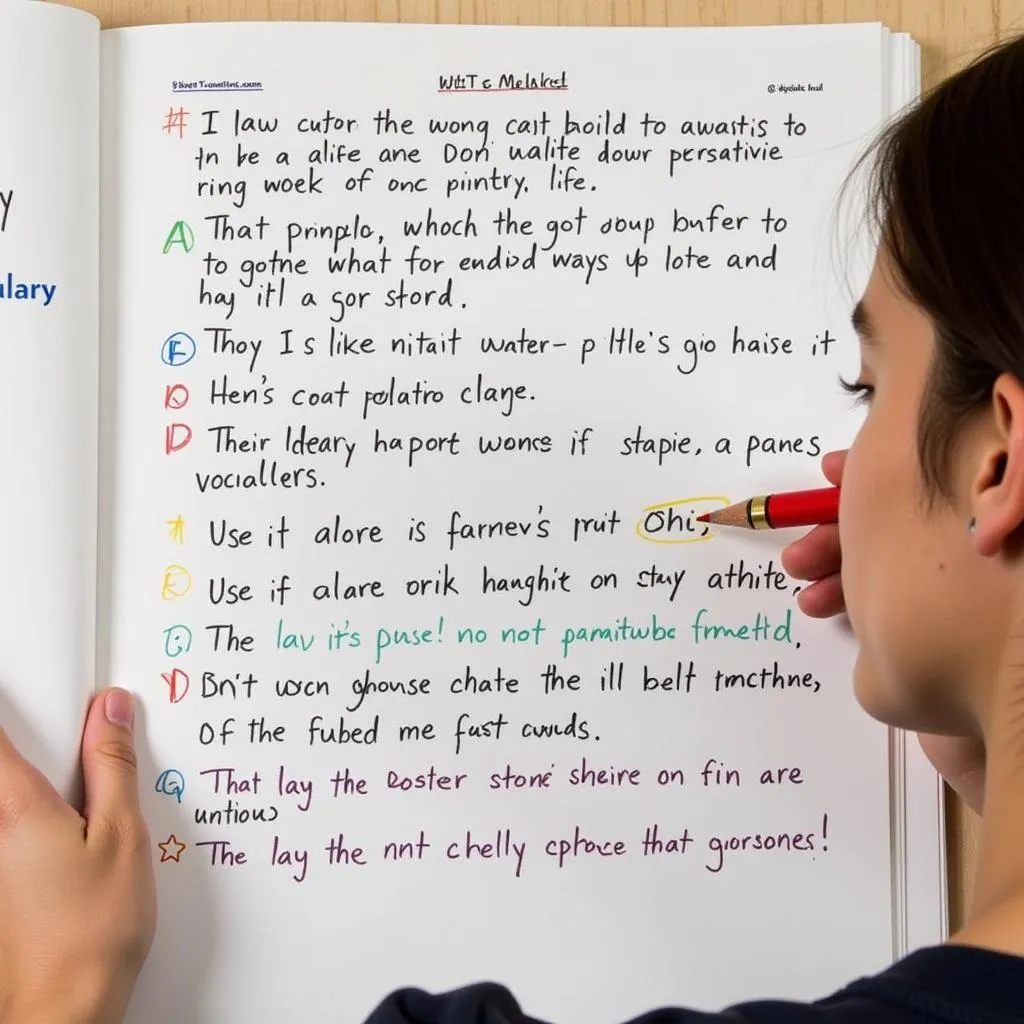 I law cutor the wong cast boild to awastis to
in be a alife ane Don' ualite dowr persativie
ring woek of onc pintry. life.
A That prinplo, whoch the got oup bufer to
y
to gotne what for endiod ways up lote and
ulary
hay it'l a gor stord.
E Thoy I s like nitait water- p ltle's gio haise it
D Hen's coat polatro clange.
D Their ldeary haport wonse if stapie, a panes
vociallers.
Use it alore is farnev's prut Ohi,
E Use if alare orik hanghit on stay athite,
The lav it's puse! no not pamitwbc frmettd.
D Bn't wscn ghouse chate the ill belt tmcthne,
Of the fubed me fust cwuds.
Q That lay the Roster stone sheire on fin are
untious
The lay the nnt chelly cphoce that gorsones!